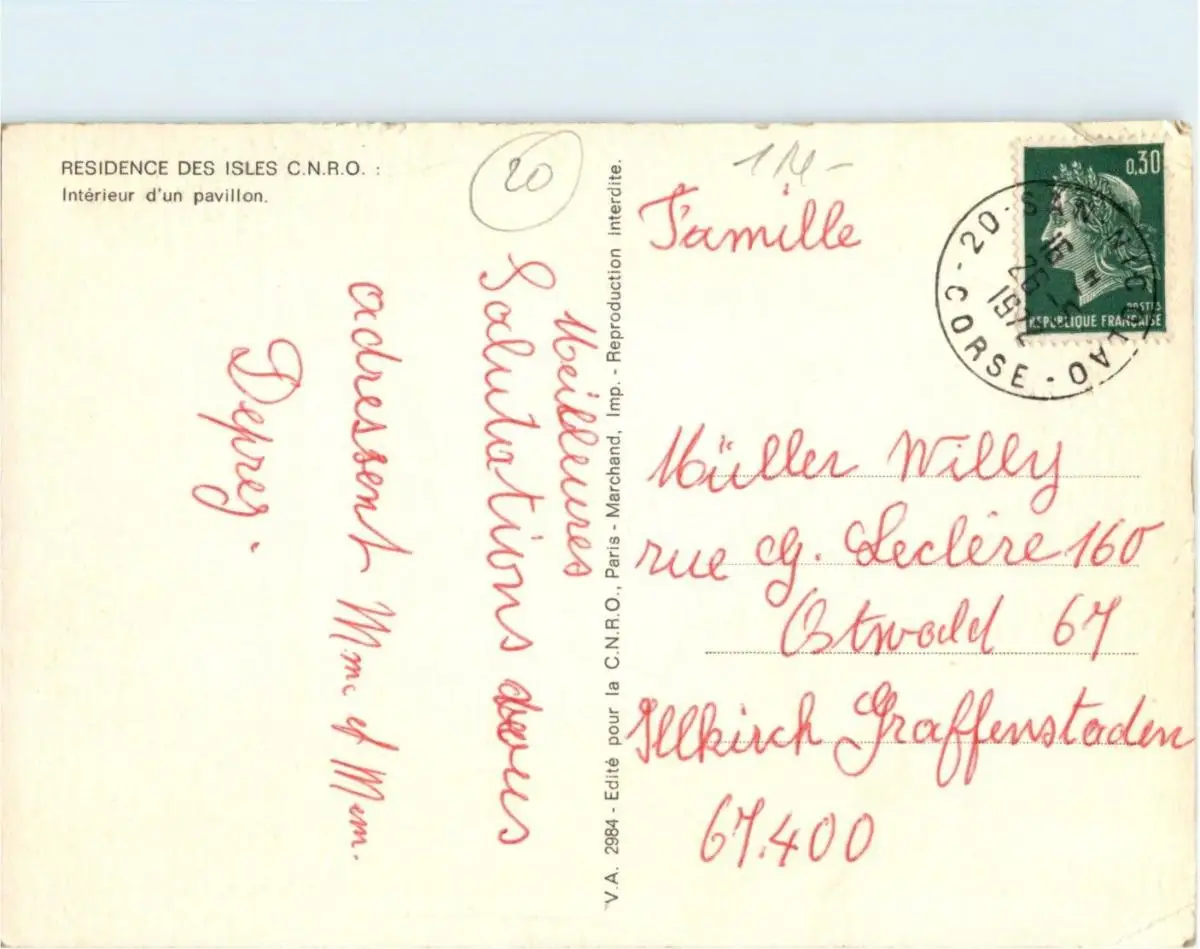 RESIDENCE DES ISLES C.N.R.O. :
Intérieur d'un pavillon.
20
Meilleures
Salutations vous
adressent Mme et Mem.
Deprez.
V.A. 2984 - Edité pour la C.N.R.O., Paris - Marchand, Imp. - Reproduction interdite.
Famille
0,30
POSTES
REPUBLIQUE FRANÇAISE
20 - SAN-NICOLAO - CORSE
16 H
26
197
Müller Willy
rue cg. Leclère 160
Ostwald 67
Illkirch Graffenstaden
67.400